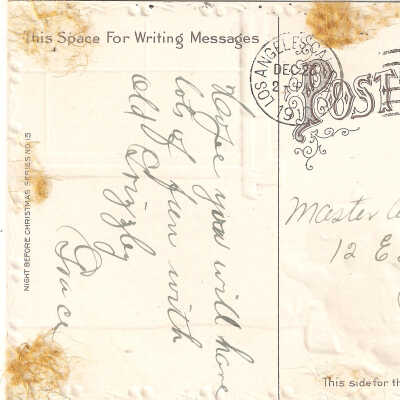 This Space For Writing Messages
Hope you will have
lots of fun with
old Grizzly
Grace
NIGHT BEFORE CHRISTMAS SERIES NO. 15
LOS ANGELES, CAL.
DEC 22
2
19
POST
Master
12 E
This side for th